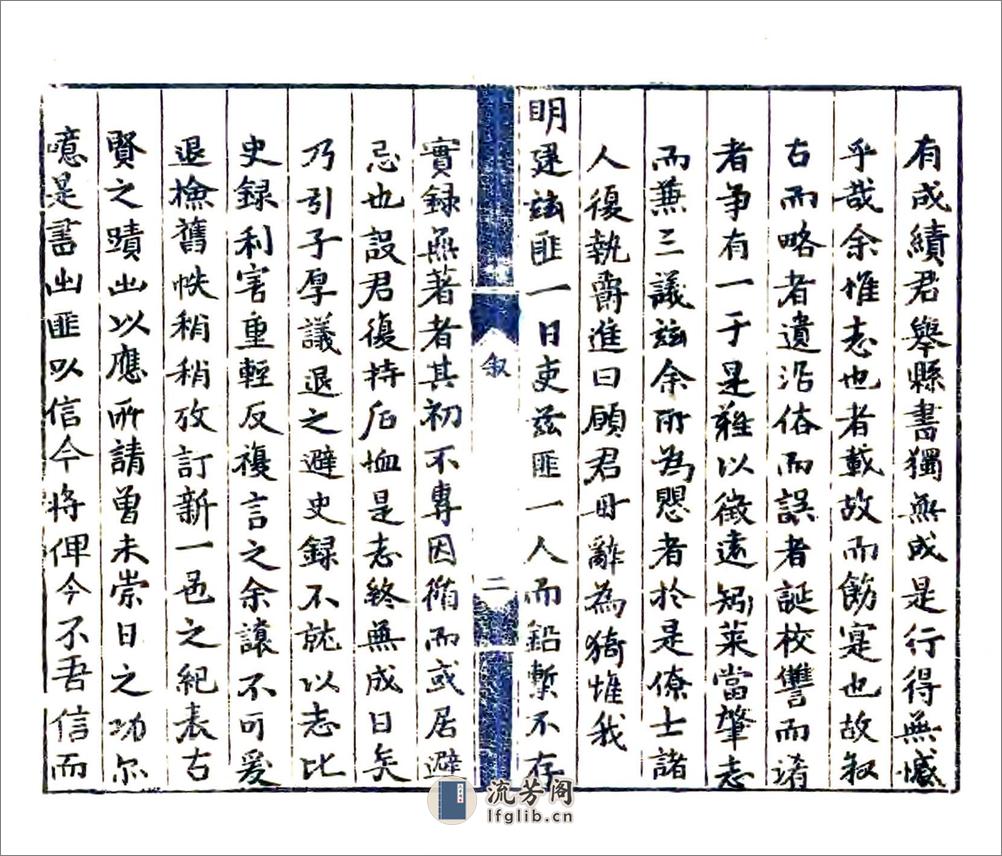 有成績君舉縣書獨無成是行得無憾
乎哉余惟志也者載故而飭寔也故叙
古而略者遺沿俗而誤者誕校讐而淆
者爭有一于是難以徵遠矧萊當肇志
而兼三議玆余所為思者於是僚士諸
人復執爵進曰願君毋辭為猗惟我
明建玆匪一日吏茲匪一人而鉛槧不存
實録無著者其初不專因循而或居避
忌也設君復持后恤是志終無成日矣
乃引子厚議退之避史録不就以志比
史録利害重輕反複言之余讓不可爰
退檢舊帙稍稍攷訂新一邑之紀表古
賢之蹟出以應所請曾未崇日之功尔
噫是書出匪以信今將俾今不吾信而
叙
二
流芳阁
lfglib.cn